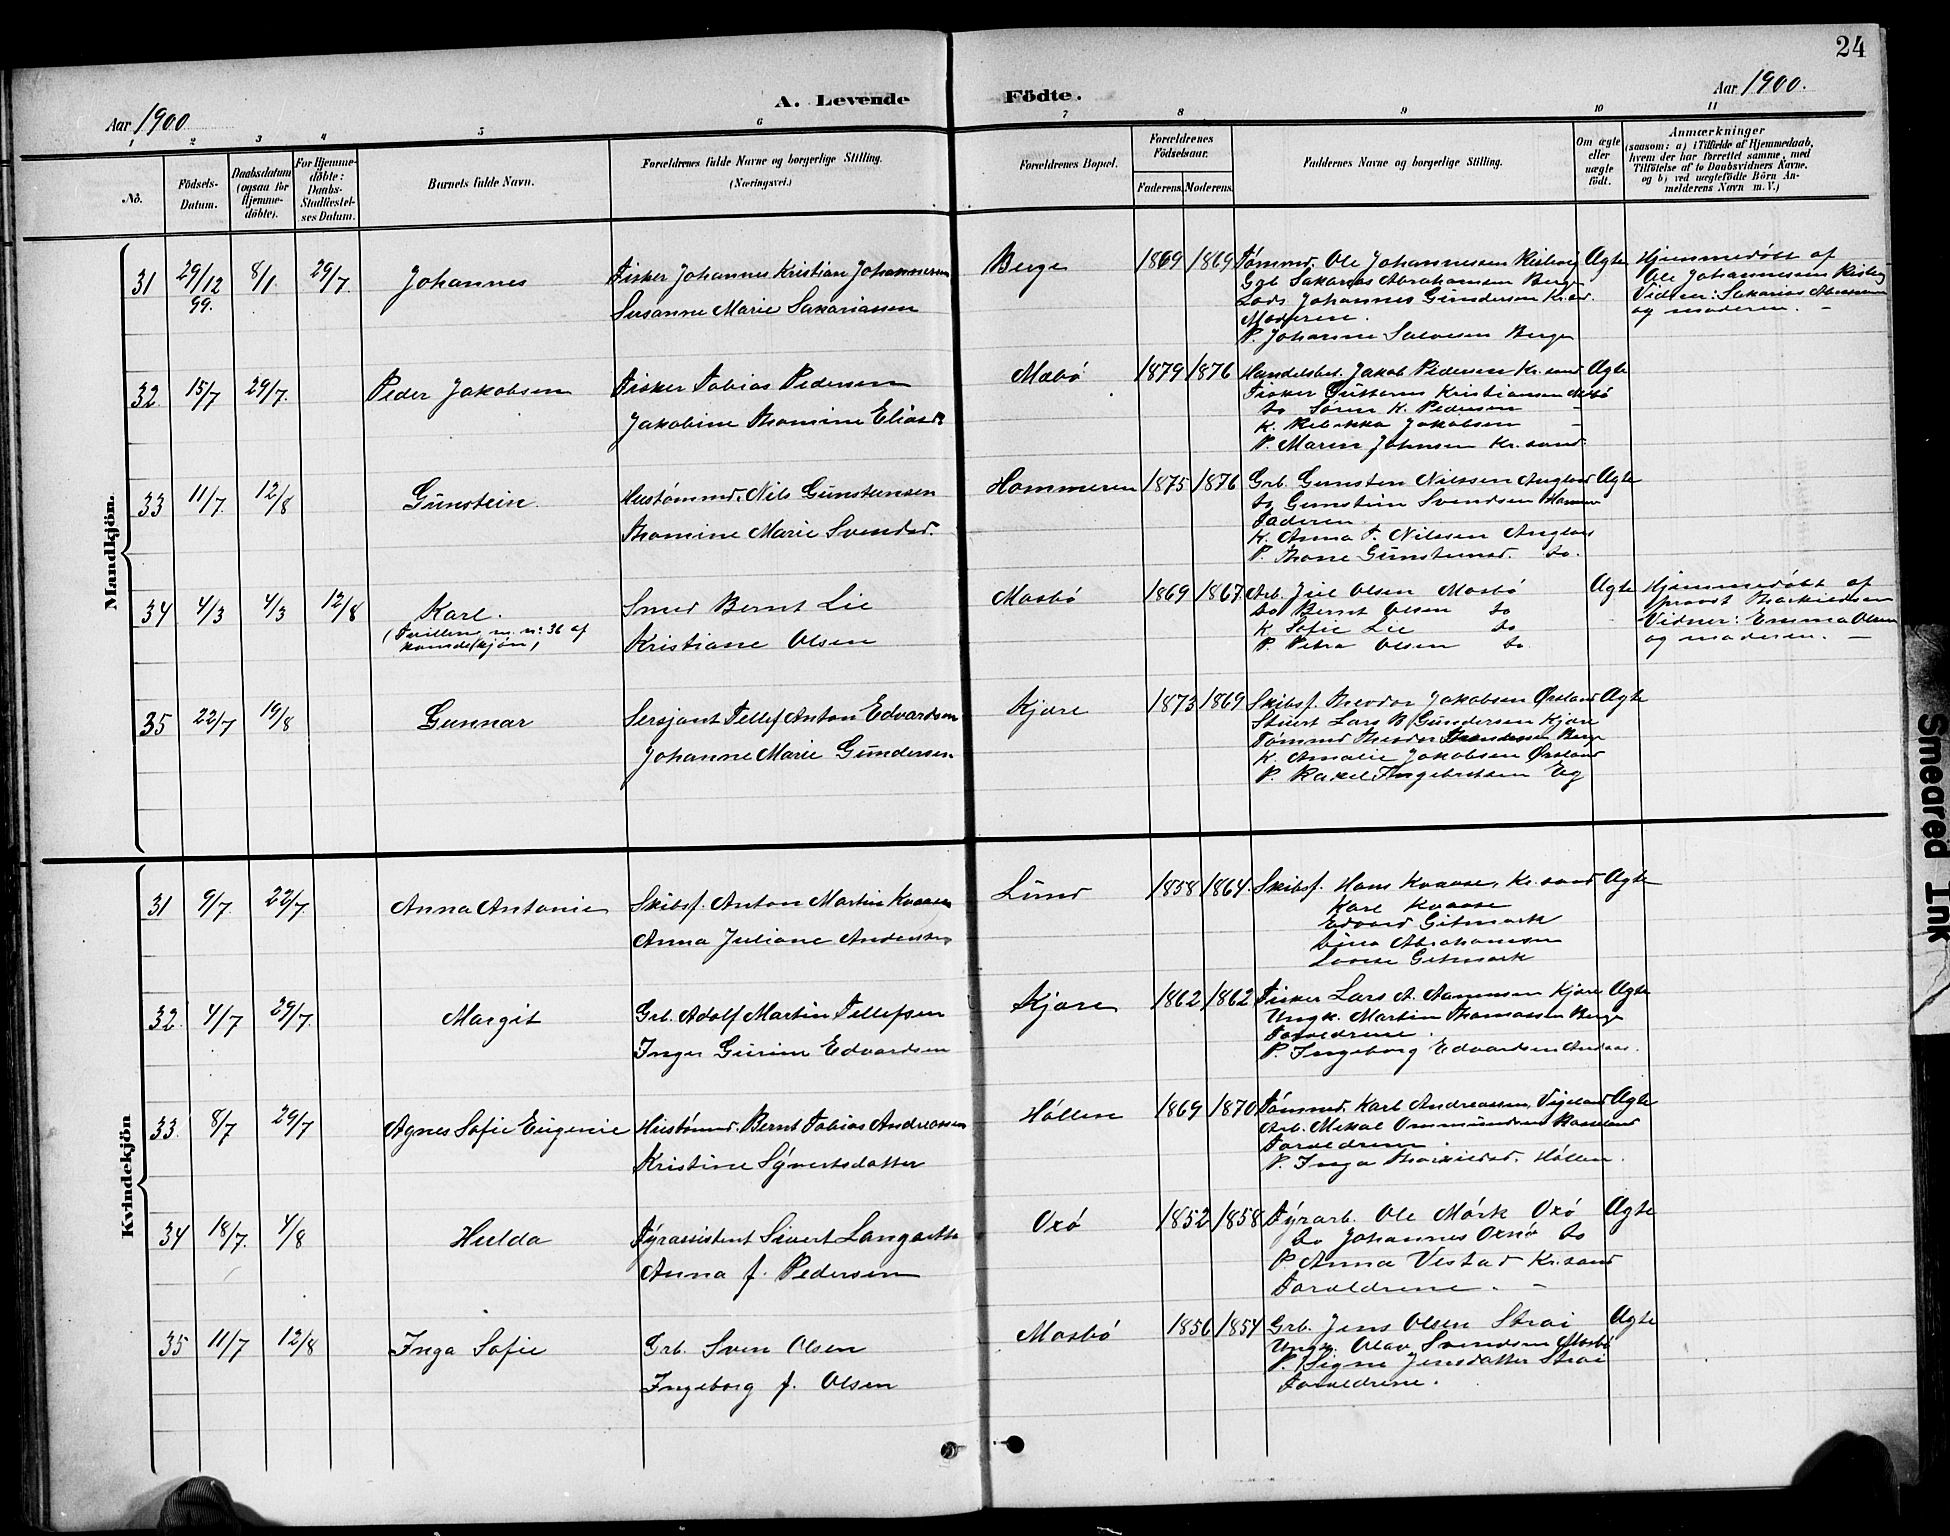 24
Aar 1900. A. Levende Födte. Aar 1900.
1 2 3 4 5 6 7 8 9 10 11
No. Födsels-Datum. Daabsdatum (ogsaa for Hjemmedöbte). For Hjemmedöbte: Daabs-Stadfæstelses Datum. Barnets fulde Navn. Forældrenes fulde Navne og borgerlige Stilling. (Næringsvei.) Forældrenes Bopæl. Forældrenes Födselsaar. Faderens. Moderens. Faddernes Navne og borgerlige Stilling. Om ægte eller uægte födt. Anmærkninger (saasom: a) i Tilfælde af Hjemmedaab, hvem der har forrettet samme, med Tilföielse af to Daabsvidners Navne, og b) ved uægtefödte Börn Anmelderens Navn m. V.)
Mandkjön.
31 29/12 99. 8/1 29/7 Johannes
Fisker Johannes Kristian Johannesen
Susanne Marie Sakariassen
Berge 1869 1869
Tømmd. Ole Johannessen
Grb. Sakarias Abrahamsen Berge
Lods Johannes Gundersen Kr.sand
Moderen.
P. Johanne Salvesen Berge
Ægte
Hjemmedøbt af
Ole Johannessen
Vidner: Sakarias Abrahamsen
og moderen. –
32 15/7 29/7. Peder Jakobsen
Fisker Tobias Pedersen
Jakobine Thomine Eliasd.
Mæbø 1879 1876
Handelsbest. Jakob Pedersen Kr.sand
Fisker Guttorm Kristiansen Mæbø
do Søren K. Pedersen –
K. Rebekka Jakobsen –
P. Maren Johnsen Kr.sand.
Ægte
33 11/7. 12/8 Gunstein.
Hustømmd. Nils Gunstensen
Thomine Marie Svendsd.
Hommeren 1875 1876
Grb. Gunsten Nilssen Augland
do Gunstein Svendsen
Faderen.
K. Anna T. Nilssen Augland
P. Thone Gunstensd. do.
Ægte
34 4/3 4/3 12/8 Karl.
(Tvilling m. nº 36 af
kvindekjøn)
Smed Bernt Lie
Kristiane Olsen
Mosbø 1869 1867.
Arb. Olsen Mosbø
do Bernt Olsen do
K. Sofie Lie do
P. Petra Olsen do.
Ægte
Hjemmedøbt af
provst Thorkildsen
Vidner: Emma Olsen
og moderen. –
35 22/7 19/8 Gunnar
Sersjant Tellef Anton Edvardsen
Johanne Marie Gundersen
Kjære 1873 1869
Skibsf. Theodor Jakobsen Øxland
Stuert Lars B. Gundersen Kjære
Tømmd Theodor Berge
K. Amalie Jakobsen Øxland
P. Rakel Ingebretsen Eg
Ægte
Kvindekjön
31 9/7. 22/7. Anna Antonie
Skibsf. Anton Martin Kvaase
Anna Juliane Andersen
Lund 1858 1864.
Skibsf. Hans Kvaase, Kr.sand
Karl Kvaase
Edvard Gitmark
Lina Abrahamsen
Lovise Gitmark
Ægte
32. 4/7 29/7. Margit
Grb. Adolf Martin Tellefsen
Inger Gurine Edvardsen
Kjære 1862 1862
Fisker Lars A. Aanensen Kjære
Ungk. Martin Thomassen Berge
Forældrene.
P. Ingeborg Edvardsen
Ægte
33. 8/7 29/7 Agnes Sofie Eugenie
Hustømd. Bernt Tobias Andreassen
Kristine Syvertsdatter
Høllen 1869 1870.
Tømmd. Karl Andreassen, Vigeland
Arb. Mikal Ommundsen Rosseland
Forældrene.
P. Inga Thorkildsd. Høllen.
Ægte
34 18/7. 4/8 Hulda
Fyrassistent Sivert
Anna f. Pedersen
Oxø 1852 1858
Fyrarb. Ole Mørk Oxø
do Johannes do
P. Anna Vestad Kr.sand
Forældrene. –
Ægte
35 11/7 12/8 Inga Sofie
Grb. Sven Olsen
Ingeborg f. Olsen
Mosbø 1856 1854
Grb. Jens Olsen Strai
Ungk. Olav Svendsen Mosbø
P. Signe Jensdatter Strai
Forældrene.
Ægte
Smeared Ink